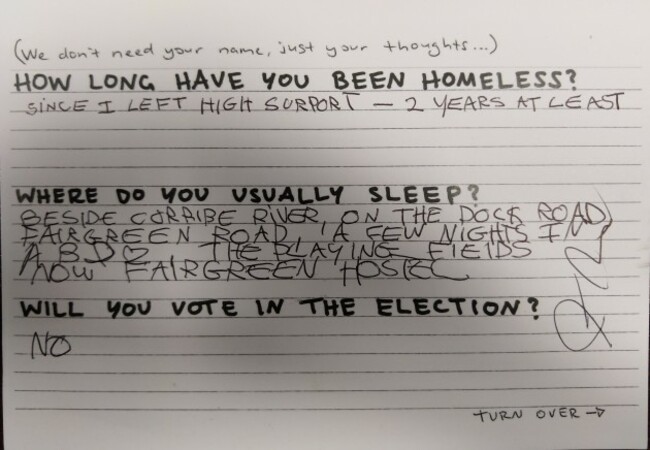 (We don't need your name, just your thoughts...)
HOW LONG HAVE YOU BEEN HOMELESS?
SINCE I LEFT HIGH SURPORT — 2 YEARS AT LEAST
WHERE DO YOU USUALLY SLEEP?
BESIDE CORRIBE RIVER, ON THE DOCK ROAD,
FAIRGREEN ROAD, A FEW NIGHTS IN
THE PLAYING FIELDS
NOW FAIRGREEN HOSTEL
WILL YOU VOTE IN THE ELECTION?
NO
TURN OVER →